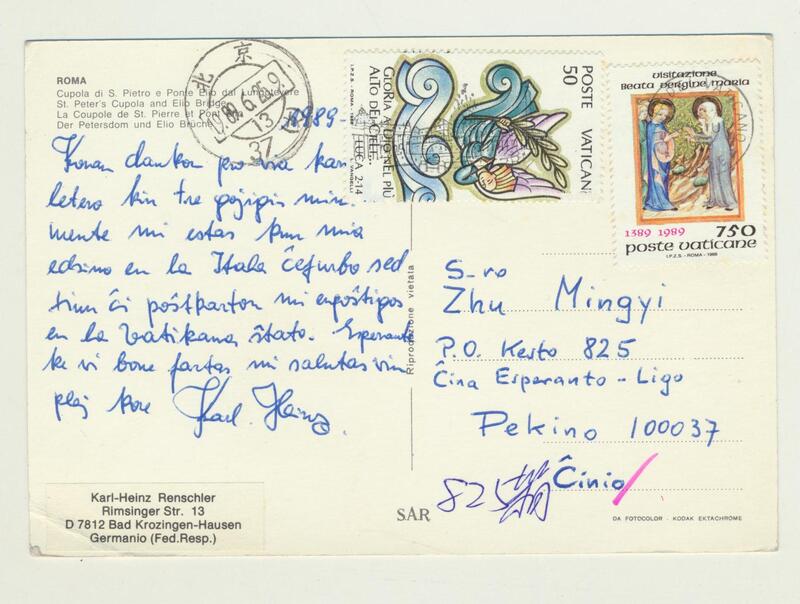 ROMA
Cupola di S. Pietro e Ponte Elio dal Lungotevere
St. Peter's Cupola and Elio Bridge
La Coupole de St. Pierre et Pont
Der Petersdom und Elio Brücke
北京
1989.6.25.9
13
37
1989-
Koran dankon pro via kara
letero kiu tre ĝojigis min.
mente mi estas kun mia
edzino en la Itala ĉefurbo sed
tiun ĉi poŝtkarton mi enpoŝtigos
en la Vatikana ŝtato. Esperante
ke vi bone fartas mi salutas vin
plej kore Karl-Heinz
Karl-Heinz Renschler
Rimsinger Str. 13
D 7812 Bad Krozingen-Hausen
Germanio (Fed.Resp.)
Riproduzione vietata
SAR
POSTE VATICANE
50
GLORIA A DIO NEL PIÙ
ALTO DEI CIELI.
LUCA 2·14
I.P.Z.S. - ROMA
visitazione
Beata Vergine Maria
1389 1989
750
poste vaticane
I.P.Z.S. - ROMA - 1989
S-ro
Zhu Mingyi
P.O. Kesto 825
Ĉina Esperanto-Ligo
Pekino 100037
Ĉinio
825箱
DA FOTOCOLOR - KODAK EKTACHROME